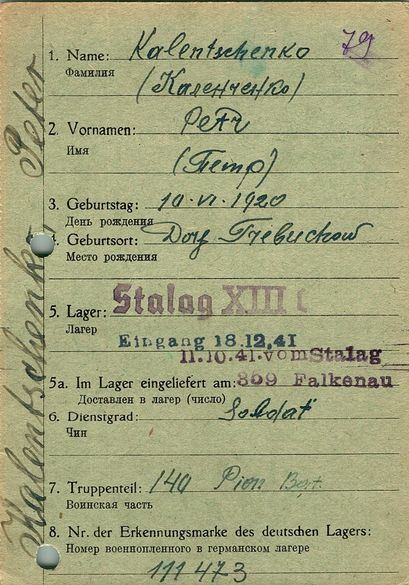 79
1. Name: Kalentschenko
Фамилия
(Каленченко)
2. Vornamen: Petr
Имя
(Петр)
3. Geburtstag: 10.VI.1920
День рождения
4. Geburtsort: Dorf Grebuchow
Место рождения
5. Lager: Stalag XIII C
Лагер
Eingang 18.12.41
11.10.41. vom Stalag
5a. Im Lager eingeliefert am: 359 Falkenau
Доставлен в лагер (число)
6. Dienstgrad: Soldat
Чин
7. Truppenteil: 140 Pion
Воинская часть
8. Nr. der Erkennungsmarke des deutschen Lagers:
Номер военнопленного в германском лагере
111473
Kalentschenko Peter